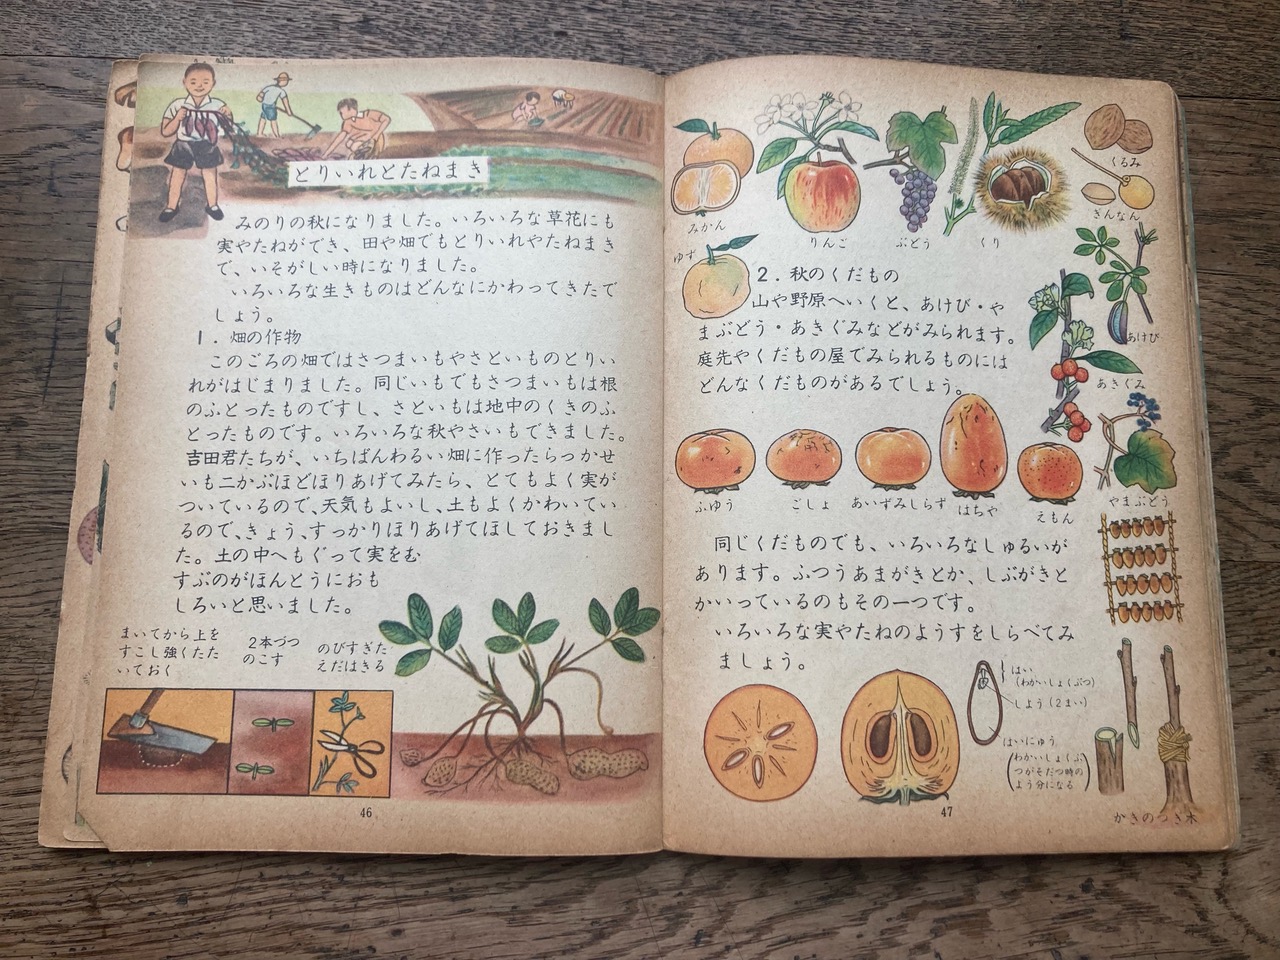 とりいれとたねまき
みのりの秋になりました。いろいろな草花にも
実やたねができ、田や畑でもとりいれやたねまき
で、いそがしい時になりました。
いろいろな生きものはどんなにかわってきたで
しょう。
1. 畑の作物
このごろの畑ではさつまいもやさといものとりい
れがはじまりました。同じいもでもさつまいもは根
のふとったものですし、さといもは地中のくきのふ
とったものです。いろいろな秋やさいもできました。
吉田君たちが、いちばんわるい畑に作ったらっかせ
いも二かぶほどほりあげてみたら、とてもよく実が
ついているので、天気もよいし、土もよくかわいてい
るので、きょう、すっかりほりあげてほしておきまし
た。土の中へもぐって実をむ
すぶのがほんとうにおも
しろいと思いました。
まいてから上を
すこし強くたた
いておく
2本づつ
のこす
のびすぎた
えだはきる
46
みかん
りんご
ぶどう
くり
くるみ
ぎんなん
ゆず
あけび
あきぐみ
やまぶどう
2. 秋のくだもの
山や野原へいくと、あけび・や
まぶどう・あきぐみなどがみられます。
庭先やくだもの屋でみられるものには
どんなくだものがあるでしょう。
ふゆう
ごしょ
あいずみしらず
はちや
えもん
同じくだものでも、いろいろなしゅるいが
あります。ふつうあまがきとか、しぶがきと
かいっているのもその一つです。
いろいろな実やたねのようすをしらべてみ
ましょう。
はい
(わかいしょくぶつ)
しよう(2まい)
はいにゅう
(わかいしょくぶ
つがそだつ時の
よう分になる)
かきのつぎ木
47